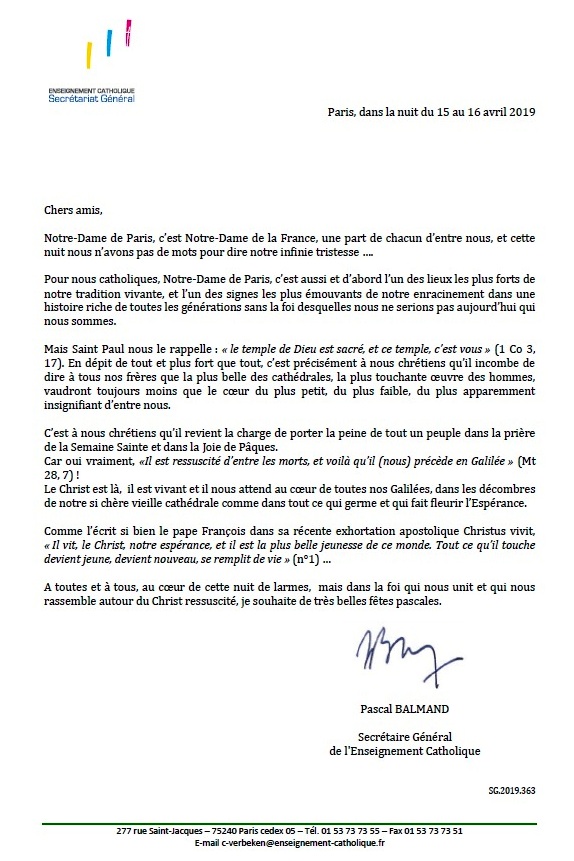 ENSEIGNEMENT CATHOLIQUE
Secrétariat Général
Paris, dans la nuit du 15 au 16 avril 2019
Chers amis,
Notre-Dame de Paris, c'est Notre-Dame de la France, une part de chacun d'entre nous, et cette
nuit nous n'avons pas de mots pour dire notre infinie tristesse ....
Pour nous catholiques, Notre-Dame de Paris, c'est aussi et d'abord l'un des lieux les plus forts de
notre tradition vivante, et l'un des signes les plus émouvants de notre enracinement dans une
histoire riche de toutes les générations sans la foi desquelles nous ne serions pas aujourd'hui qui
nous sommes.
Mais Saint Paul nous le rappelle : « le temple de Dieu est sacré, et ce temple, c'est vous » (1 Co 3,
17). En dépit de tout et plus fort que tout, c'est précisément à nous chrétiens qu'il incombe de
dire à tous nos frères que la plus belle des cathédrales, la plus touchante œuvre des hommes,
vaudront toujours moins que le cœur du plus petit, du plus faible, du plus apparemment
insignifiant d'entre nous.
C'est à nous chrétiens qu'il revient la charge de porter la peine de tout un peuple dans la prière
de la Semaine Sainte et dans la Joie de Pâques.
Car oui vraiment, «Il est ressuscité d'entre les morts, et voilà qu'il (nous) précède en Galilée » (Mt
28, 7) !
Le Christ est là, il est vivant et il nous attend au cœur de toutes nos Galilées, dans les décombres
de notre si chère vieille cathédrale comme dans tout ce qui germe et qui fait fleurir l'Espérance.
Comme l'écrit si bien le pape François dans sa récente exhortation apostolique Christus vivit,
« Il vit, le Christ, notre espérance, et il est la plus belle jeunesse de ce monde. Tout ce qu'il touche
devient jeune, devient nouveau, se remplit de vie » (n°1) ...
A toutes et à tous, au cœur de cette nuit de larmes, mais dans la foi qui nous unit et qui nous
rassemble autour du Christ ressuscité, je souhaite de très belles fêtes pascales.
Pascal BALMAND
Secrétaire Général
de l'Enseignement Catholique
SG.2019.363
277 rue Saint-Jacques – 75240 Paris cedex 05 – Tél. 01 53 73 73 55 – Fax 01 53 73 73 51
E-mail c-verbeken@enseignement-catholique.fr